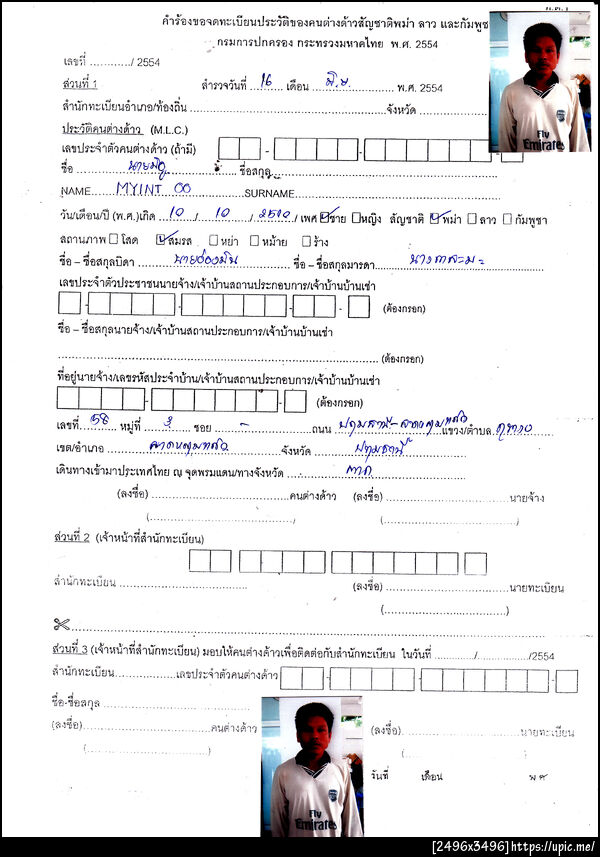 ท.ต.1
คำร้องขอจดทะเบียนประวัติของคนต่างด้าวสัญชาติพม่า ลาว และกัมพูชา
กรมการปกครอง กระทรวงมหาดไทย พ.ศ. 2554
เลขที่ ............/ 2554
ส่วนที่ 1 สำรวจวันที่ 16 เดือน มิ.ย. พ.ศ. 2554
สำนักทะเบียนอำเภอ/ท้องถิ่น ........ จังหวัด ........
Fly
Emirates
ประวัติคนต่างด้าว (M.L.C.)
เลขประจำตัวคนต่างด้าว (ถ้ามี)
ชื่อ ........ ชื่อสกุล ........
NAME MYINT OO SURNAME ........
วัน/เดือน/ปี (พ.ศ.)เกิด 10 / 10 / 2510 / เพศ ☑ ชาย ☐ หญิง สัญชาติ ☑ พม่า ☐ ลาว ☐ กัมพูชา
สถานภาพ ☐ โสด ☑ สมรส ☐ หย่า ☐ หม้าย ☐ ร้าง
ชื่อ – ชื่อสกุลบิดา ........ ชื่อ – ชื่อสกุลมารดา ........
เลขประจำตัวประชาชนนายจ้าง/เจ้าบ้านสถานประกอบการ/เจ้าบ้านบ้านเช่า
(ต้องกรอก)
ชื่อ – ชื่อสกุลนายจ้าง/เจ้าบ้านสถานประกอบการ/เจ้าบ้านบ้านเช่า
........ (ต้องกรอก)
ที่อยู่นายจ้าง/เลขรหัสประจำบ้าน/เจ้าบ้านสถานประกอบการ/เจ้าบ้านบ้านเช่า
(ต้องกรอก)
เลขที่ 58 หมู่ที่ 3 ซอย - ถนน ปทุมธานี-ลาดหลุมแก้ว แขวง/ตำบล คูขวาง
เขต/อำเภอ ลาดหลุมแก้ว จังหวัด ปทุมธานี
เดินทางเข้ามาประเทศไทย ณ จุดพรมแดน/ทางจังหวัด ตาก
(ลงชื่อ) ........ คนต่างด้าว (ลงชื่อ) ........ นายจ้าง
(........) (........)
ส่วนที่ 2 (เจ้าหน้าที่สำนักทะเบียน)
สำนักทะเบียน ........ (ลงชื่อ) ........ นายทะเบียน
(........)
ส่วนที่ 3 (เจ้าหน้าที่สำนักทะเบียน) มอบให้คนต่างด้าวเพื่อติดต่อกับสำนักทะเบียน ในวันที่ ......../......../2554
สำนักทะเบียน ........ เลขประจำตัวคนต่างด้าว
ชื่อ-ชื่อสกุล ........
(ลงชื่อ) ........ คนต่างด้าว (ลงชื่อ) ........ นายทะเบียน
(........) (........)
วันที่ เดือน พ.ศ.
Fly
Emirates
[2496x3496]https://upic.me/